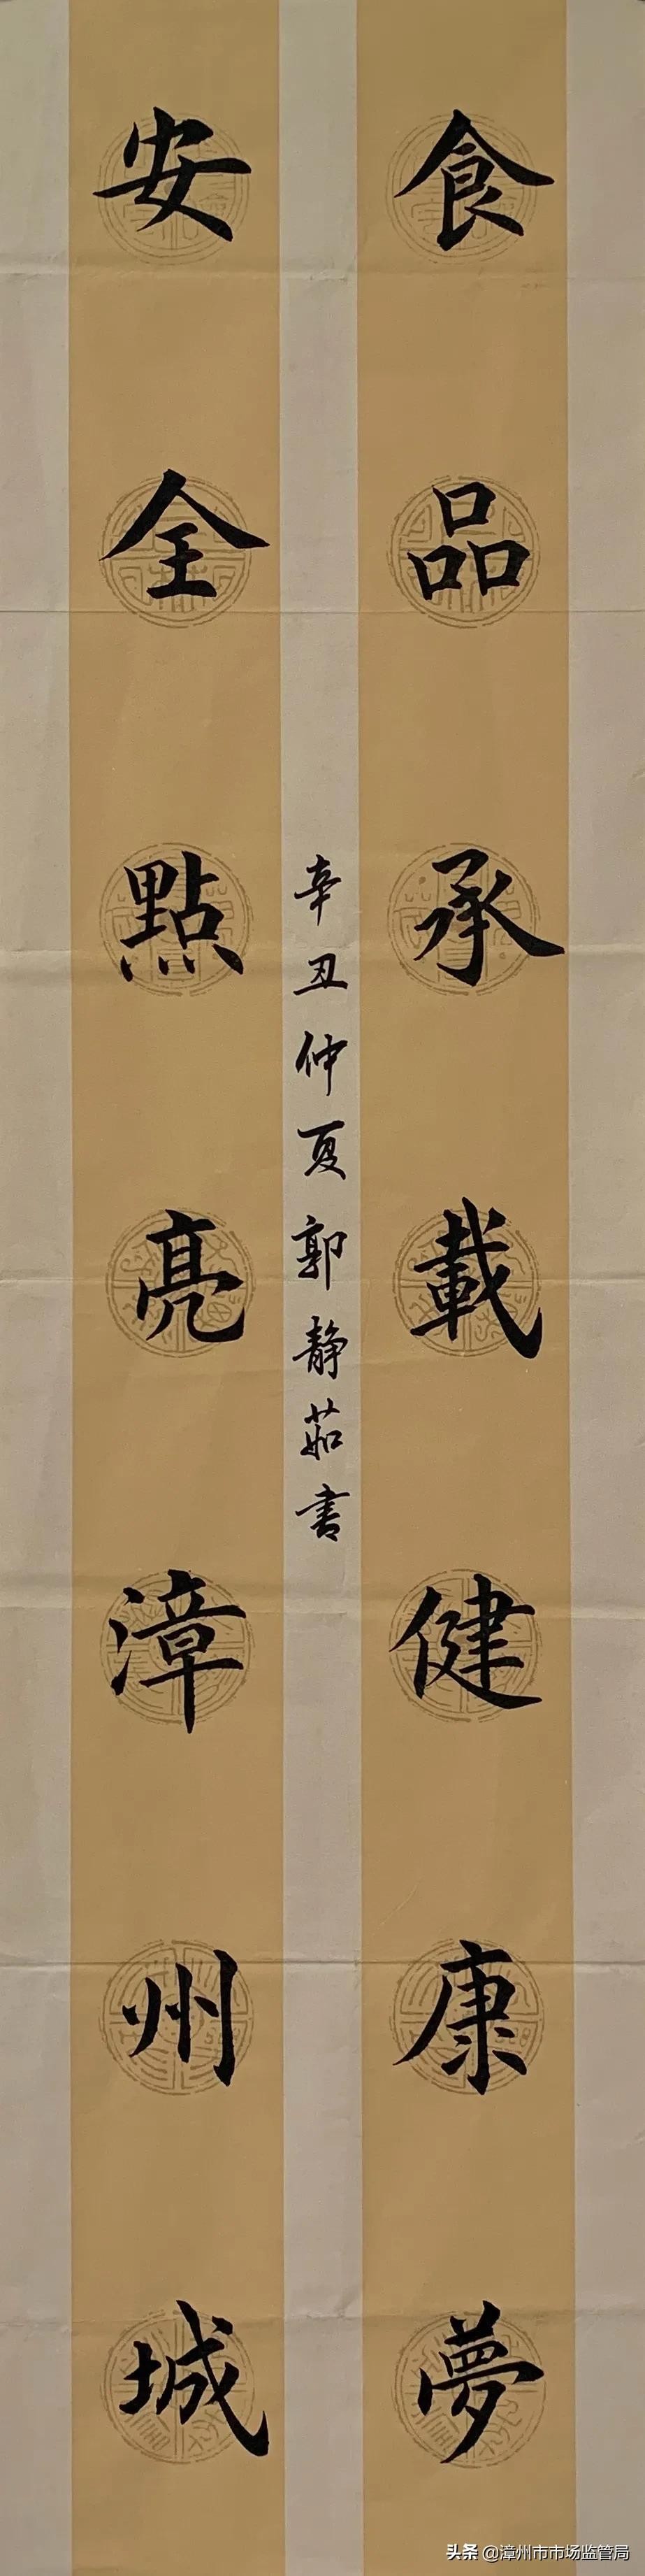 食品承載健康夢
安全點亮漳州城
辛丑仲夏郭静茹书
头条 @漳州市市场监管局